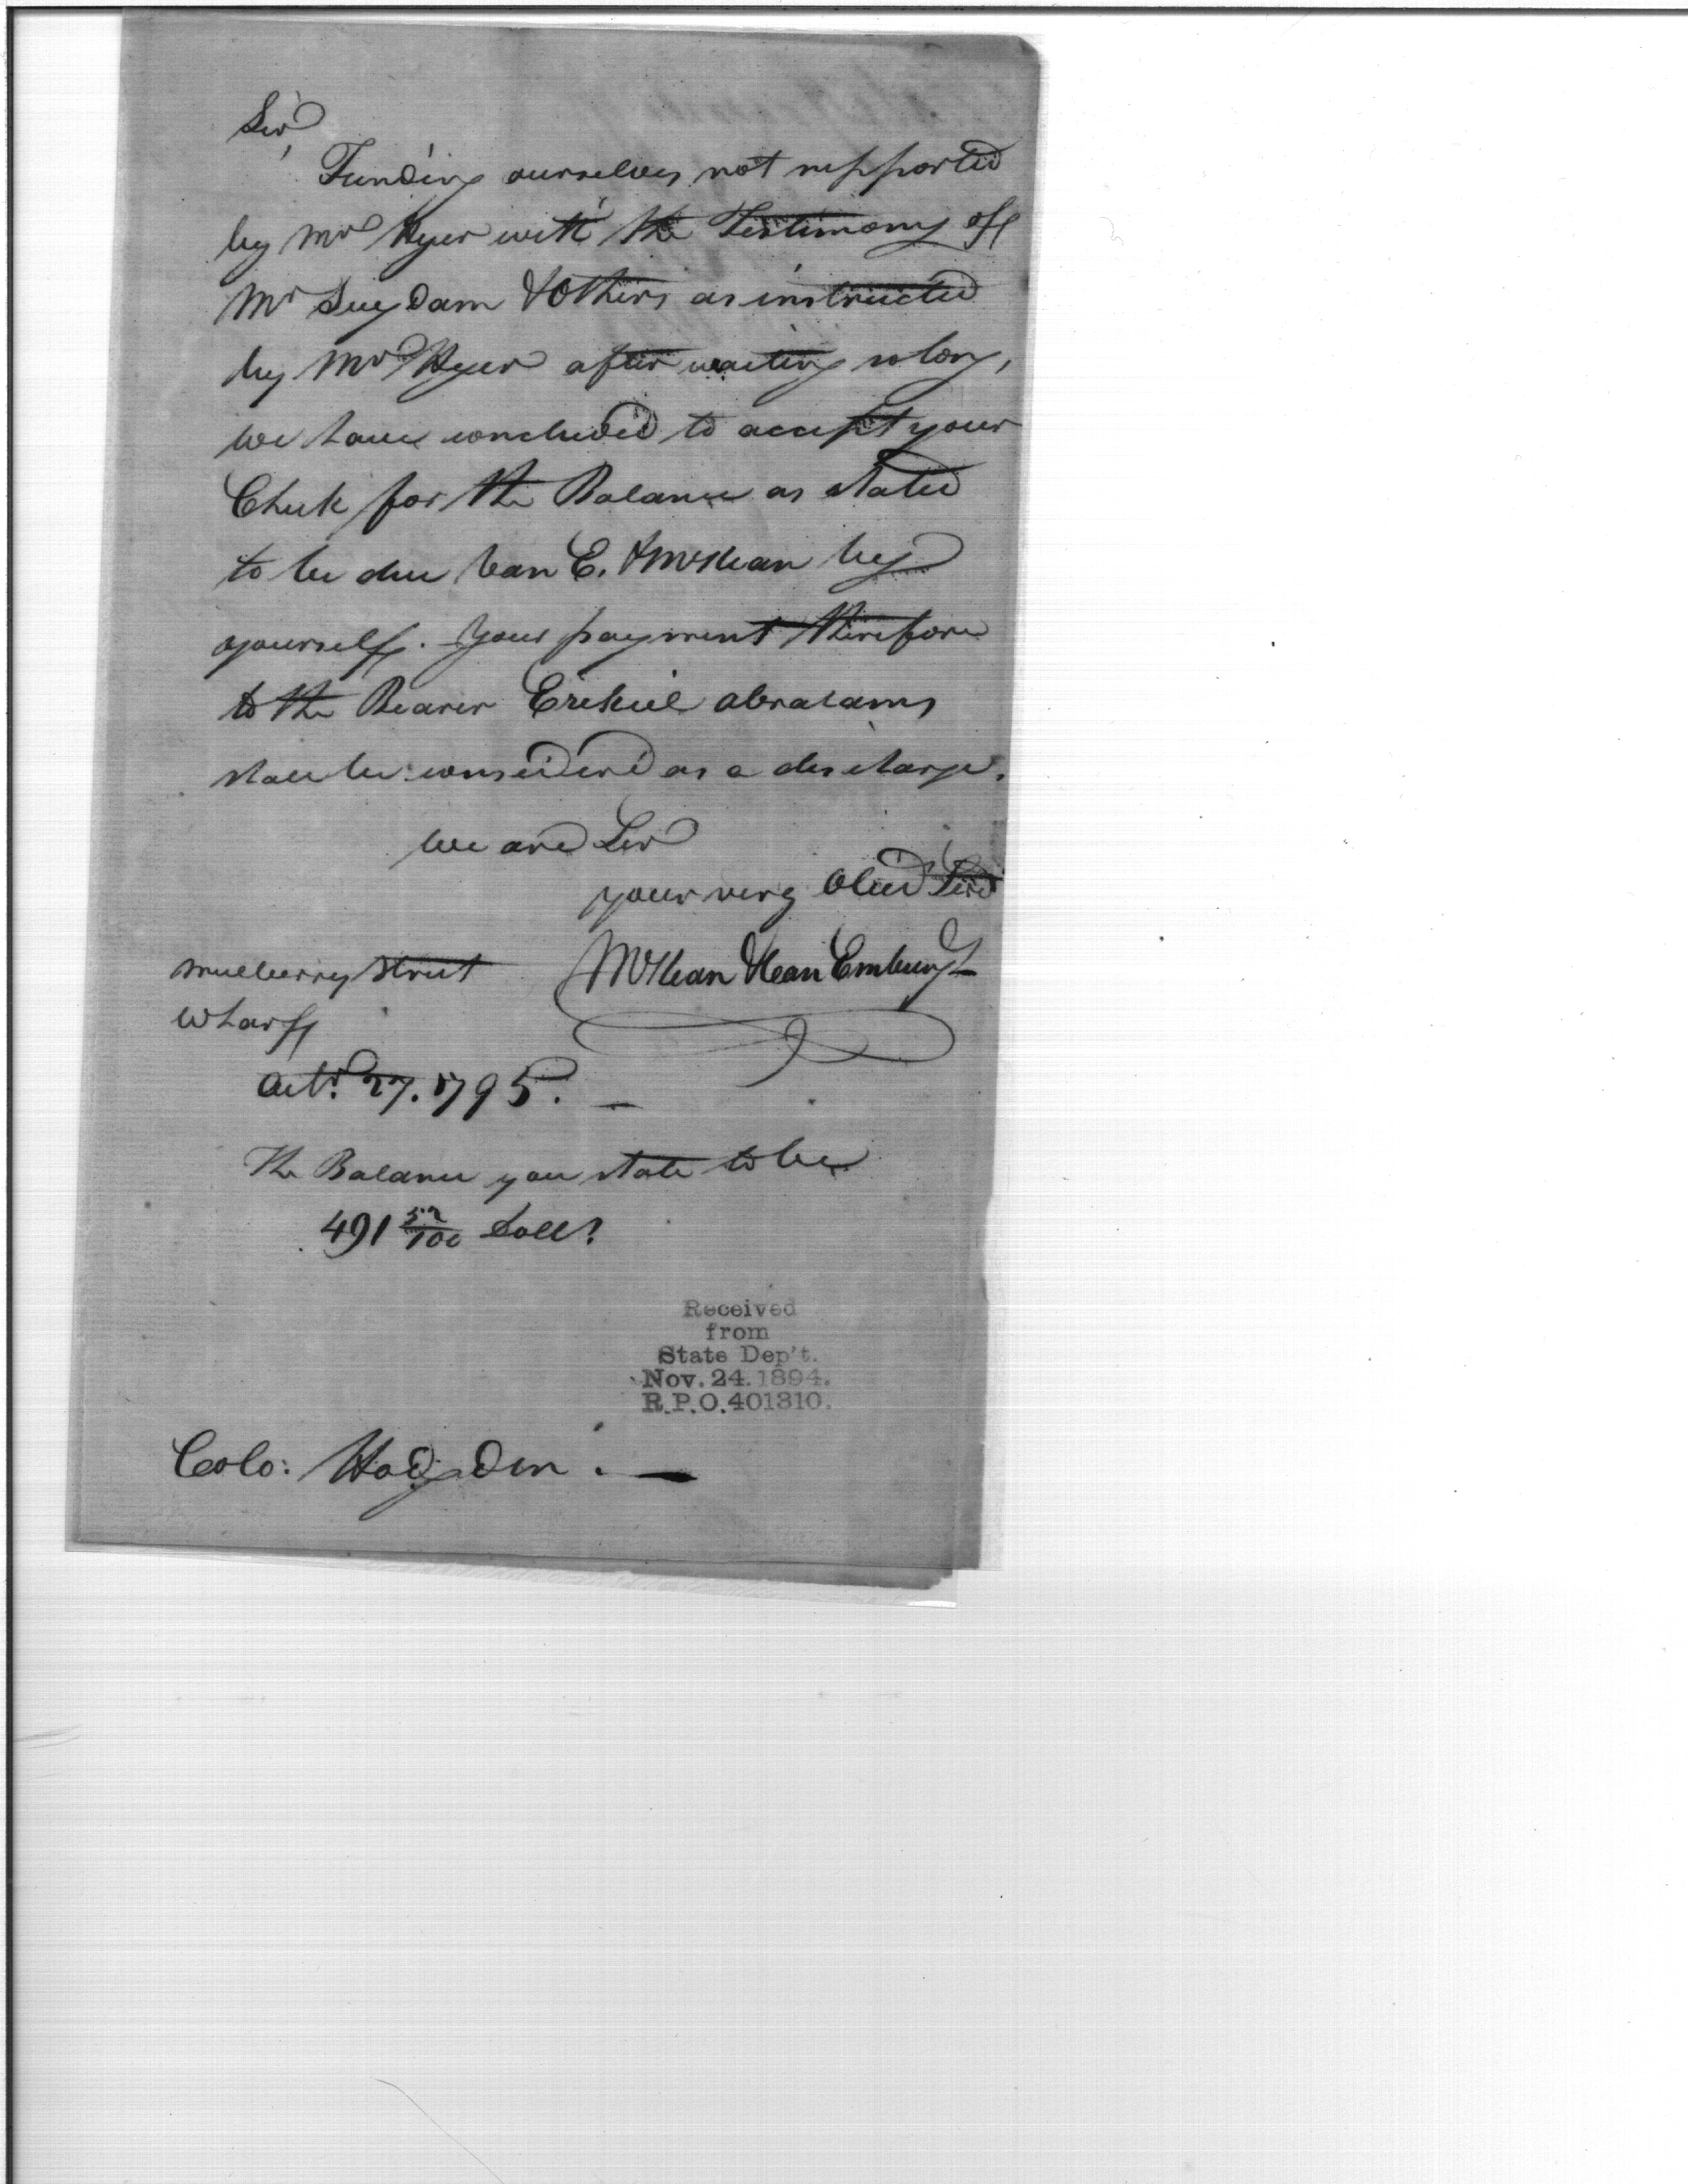 Sir,
Finding ourselves not supported
by Mr Hyer with the Testimony off
Mr Suydam & Others as instructed
by Mr Hyer after waiting so long,
we have concluded to accept your
Check for the Balance as stated
to be due Van E. & McKean by
yourself. Your payment therefore
to the Bearer Ezekiel Abrahams
shall be considered as a discharge.
we are Sir
your very Obed Serv
McKean & Van Emburgh
Mulberry Street
Wharff
Octr. 27. 1795. —
The Balance you state to be
491 52/100 Dolls
Received
from
State Dep't.
Nov. 24. 1894.
R.P.O. 401310.
Colo: Hodgdon. —